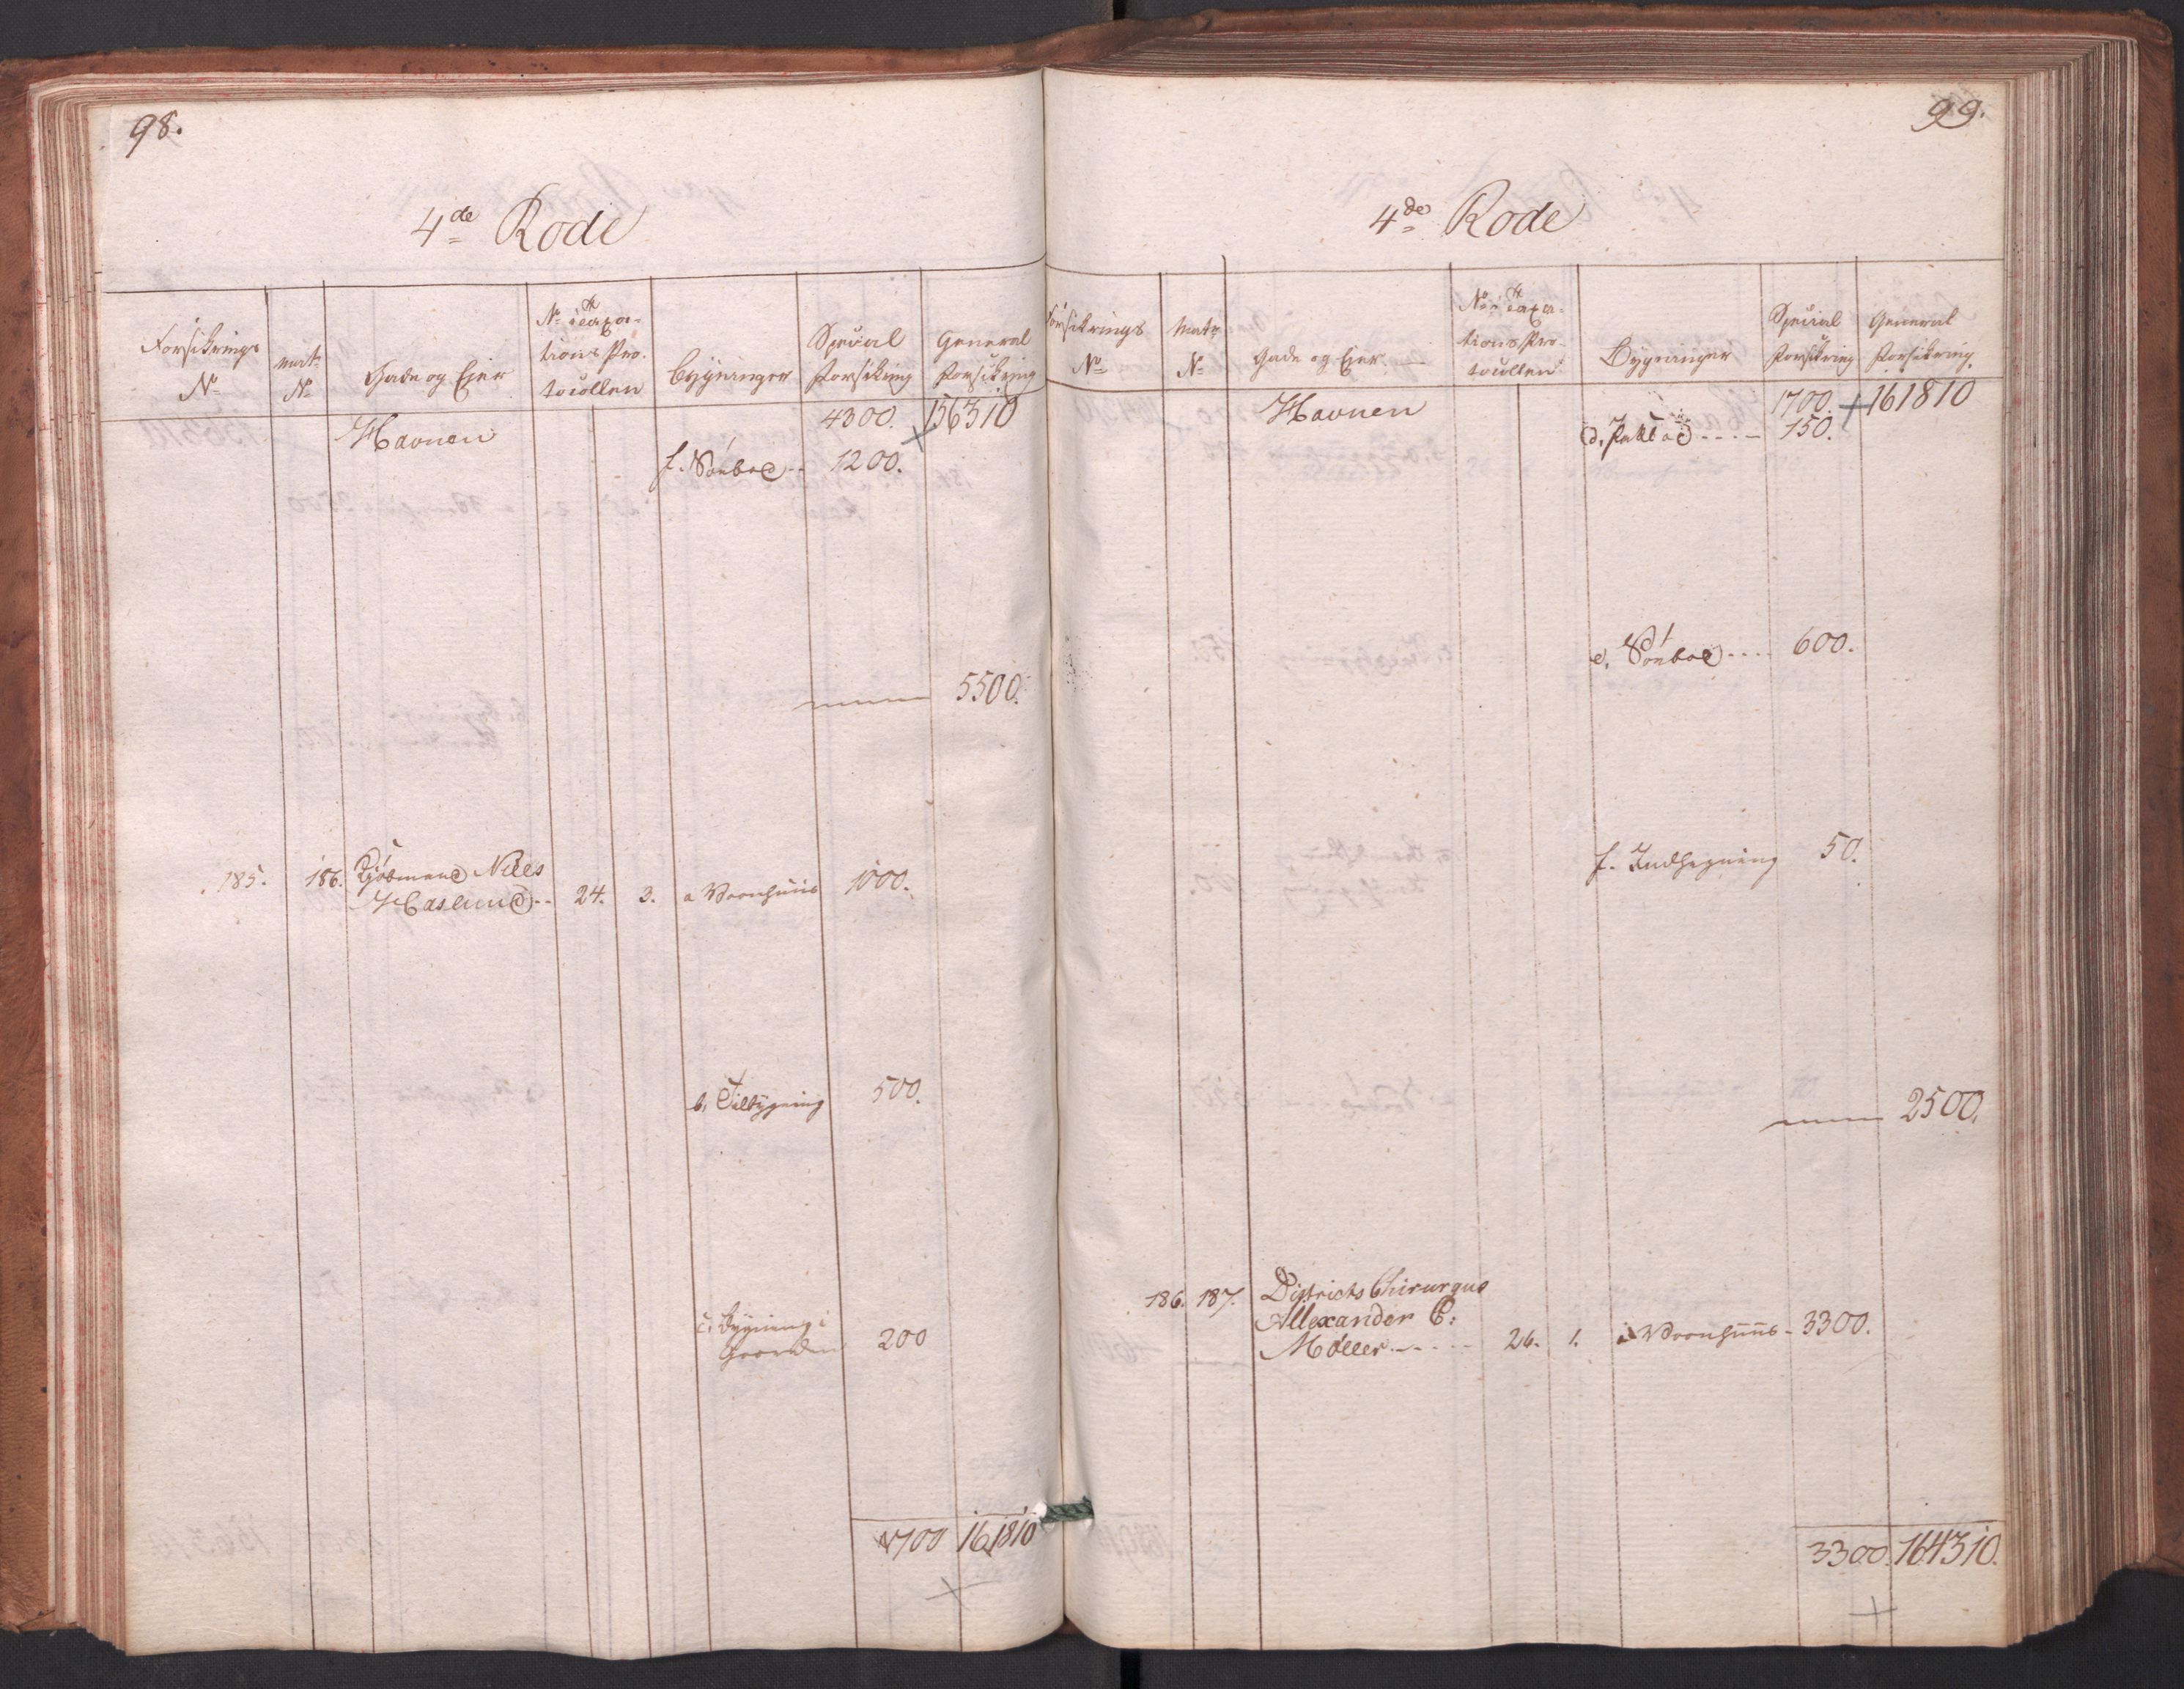 98.
4de Rode
Forsikrings No
Mat: No
Gade og Ejer
No i Taxations Protocollen
Bygninger
Special Forsikring
General Forsikring
Havnen
4300. 156310
f. Söebod -- 1200.
5500.
185. 186. Kjöbmand Niels
Haslund -- 24. 3. a Vaanhuus 1000.
b, Tilbygning 500.
c, Bygning i
Gaarden 200
1700 161810
99.
4de Rode
Forsikrings No
Matr No
Gade og Ejer
No i Taxations Protocollen
Bygninger
Special Forsikring
General Forsikring
Havnen
1700. 161810
d, Pakbod ---- 150.
e, Söebod ---- 600.
f. Indhegning 50.
2500.
186. 187. Districts Chirurgus
Allexander C:
Møller ----- 26. 1. a Vaanhuus - 3300.
3300. 164310.